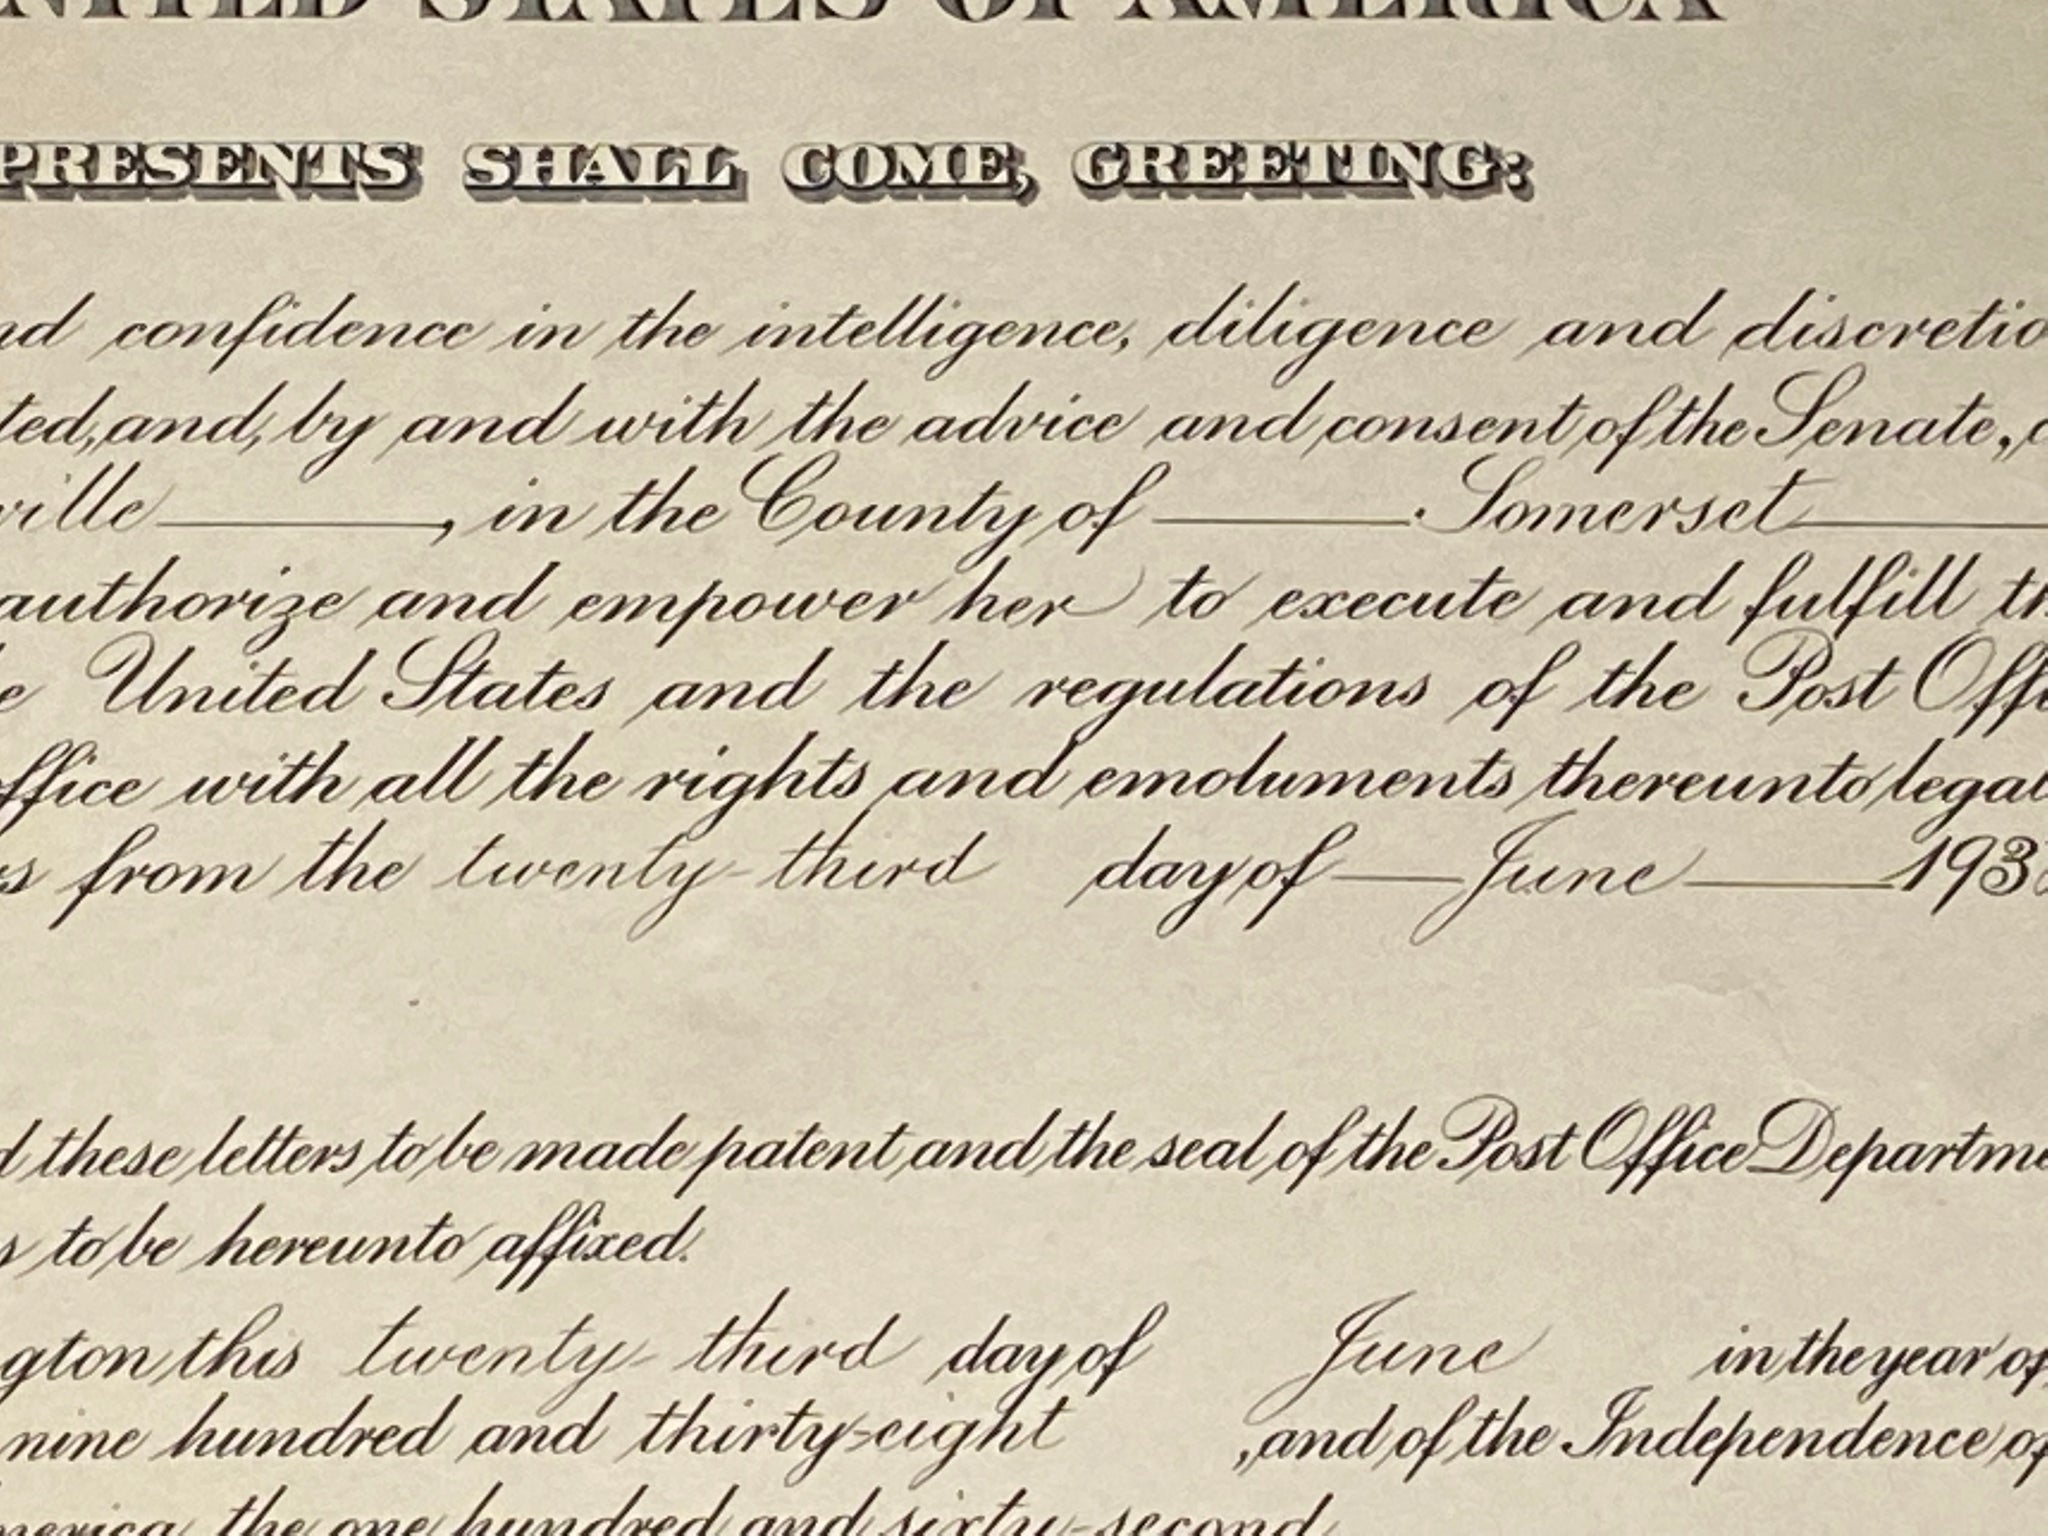 UNITED STATES OF AMERICA
PRESENTS SHALL COME, GREETING:
nd confidence in the intelligence, diligence and discretio
ted, and, by and with the advice and consent of the Senate,
ville, in the County of Somerset
authorize and empower her to execute and fulfill th
e United States and the regulations of the Post Offi
office with all the rights and emoluments thereunto legal
rs from the twenty-third day of June 193
d these letters to be made patent and the seal of the Post Office Departme
s to be hereunto affixed.
gton this twenty-third day of June in the year of
nine hundred and thirty-eight , and of the Independence of
merica the one hundred and sixty-second